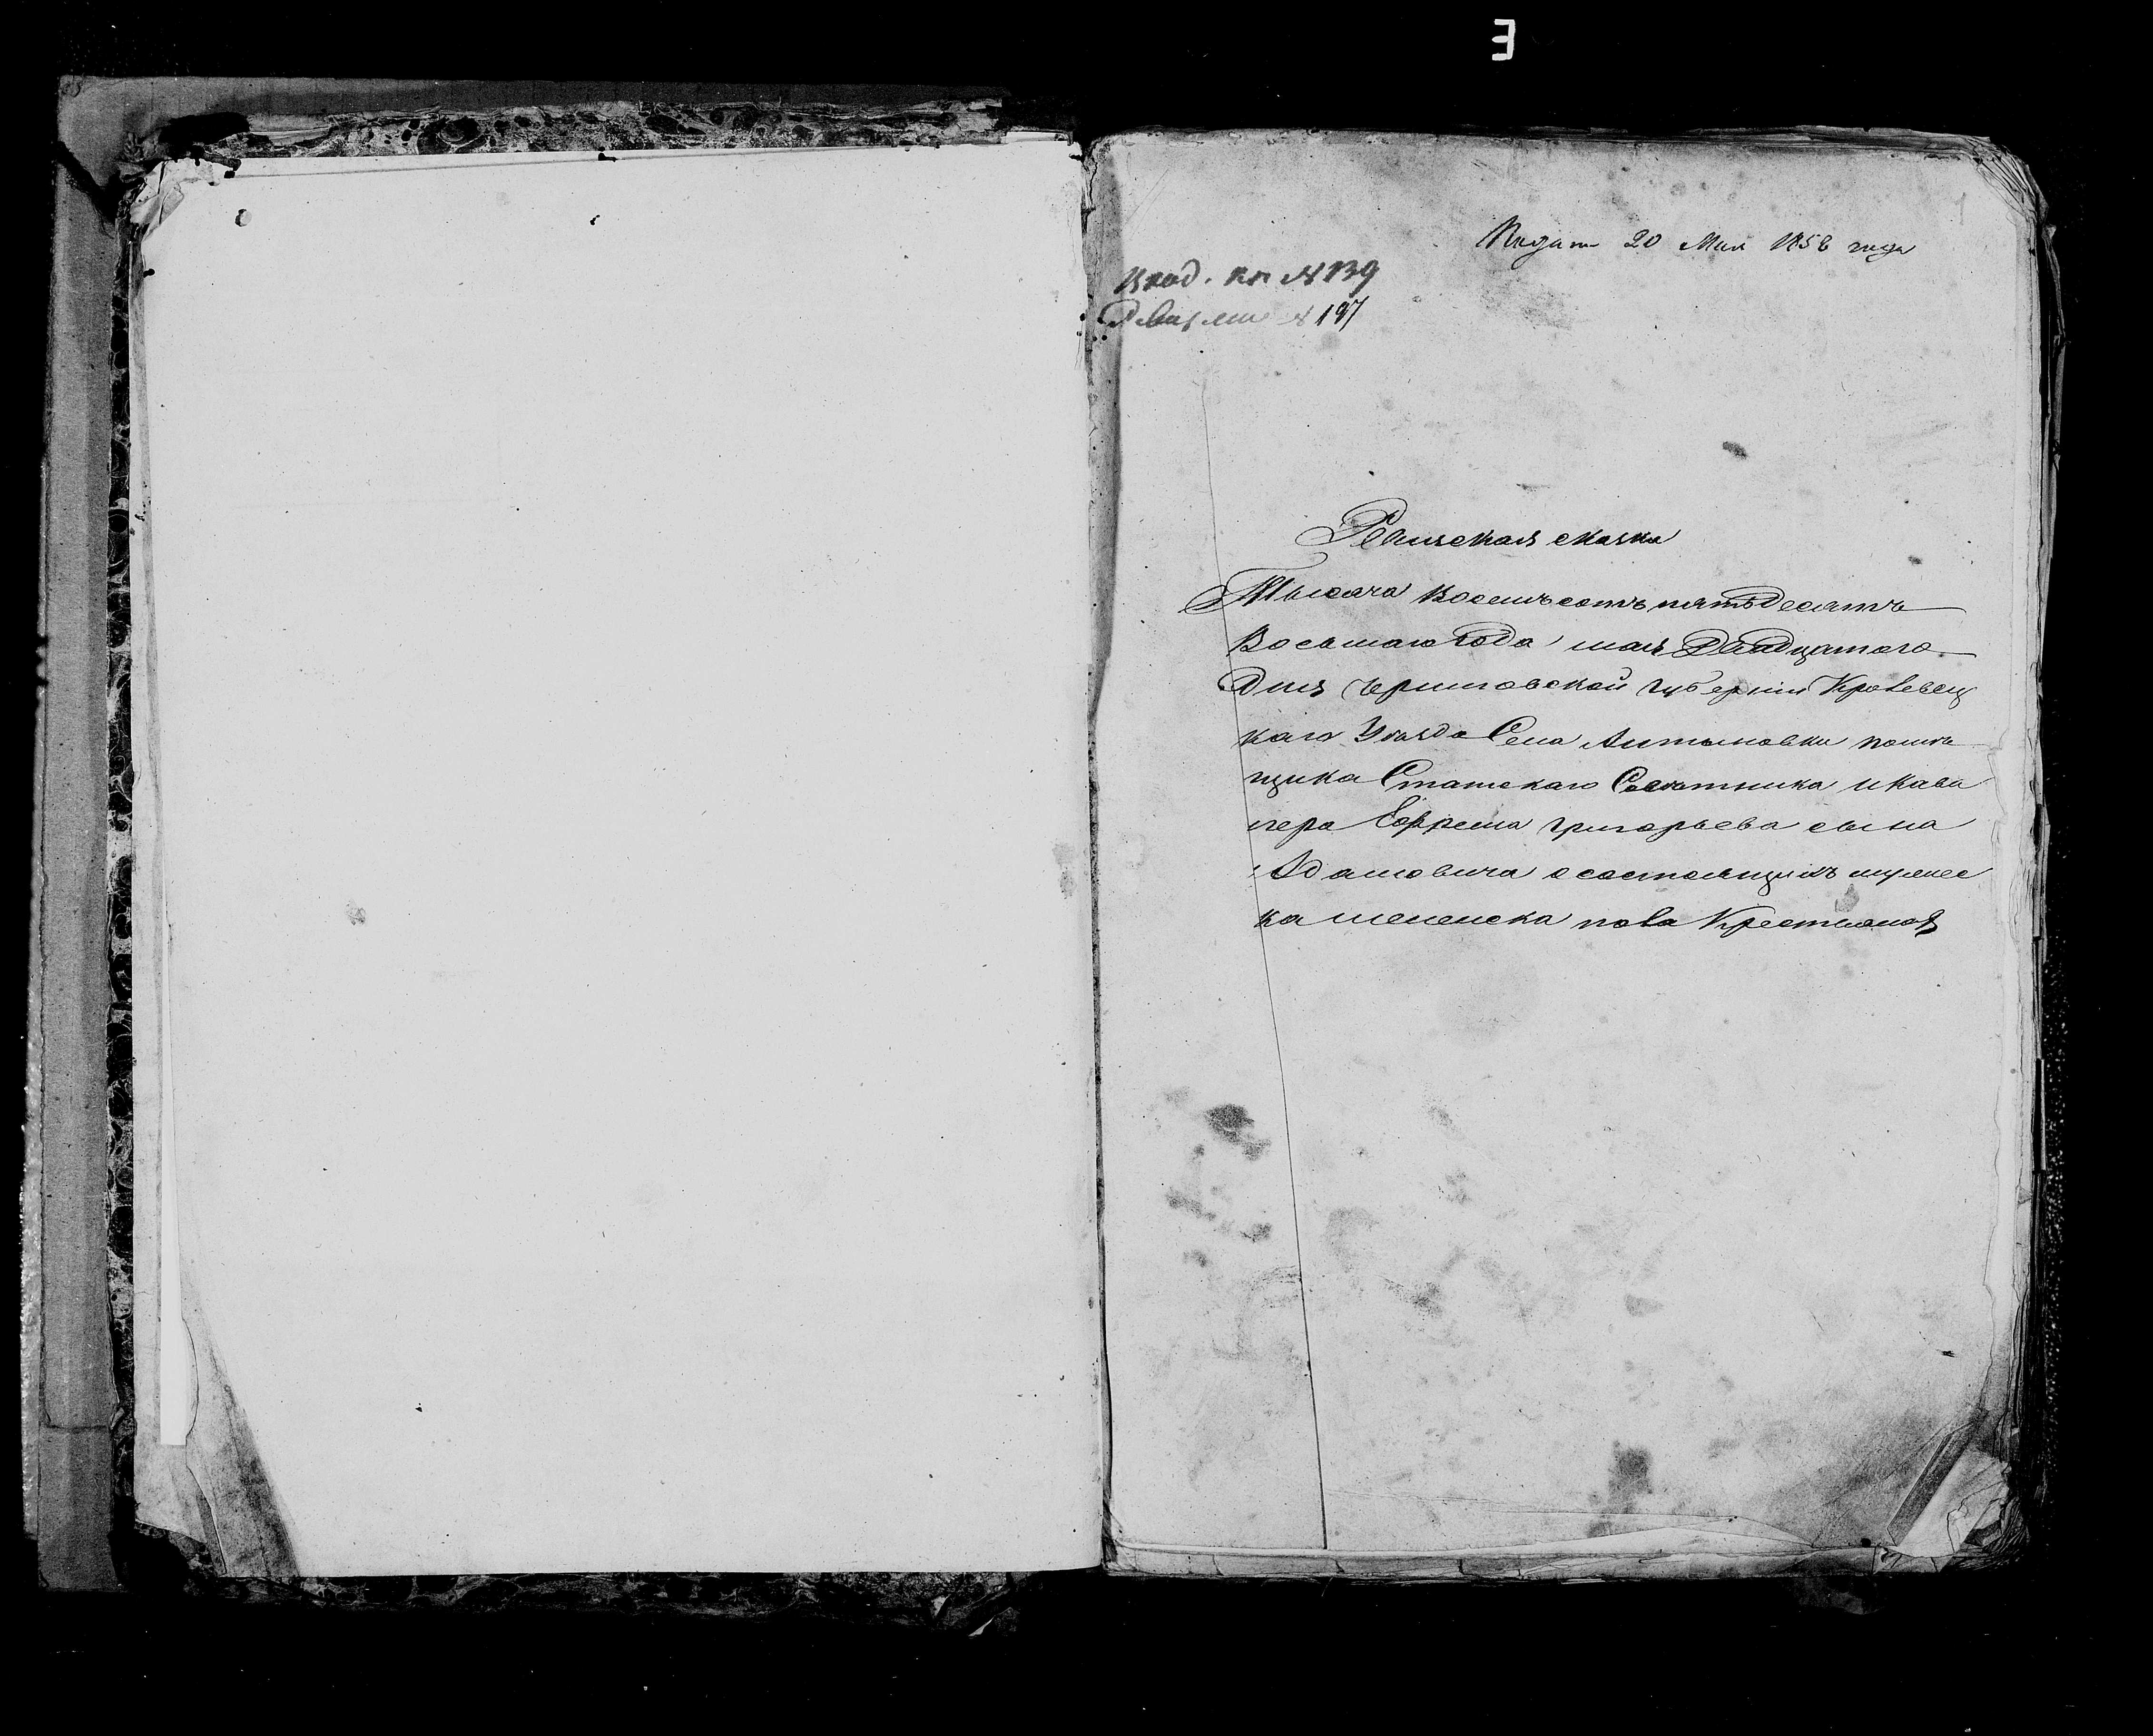 1
Подат 20 Мая 1858 года
Вход. кн №139
Ревизии № 197
Ревизская сказка
Тысяча восемьсотъ пятьдесятъ
Восьмаго года мая Двадцатого
Дня Черниговской губернии Кролевец
каго Уѣзда Села Антоновки помѣ
щика Статскаго Советника и Кава
лера Ефрема Григорьева сына
Адамовича о состоящихъ мужес
ка и женска пола Крестьянах